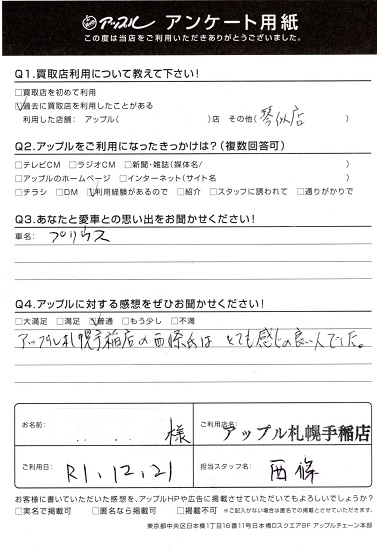 アップル アンケート用紙
この度は当店をご利用いただきありがとうございました。
Q1.買取店利用について教えて下さい!
□買取店を初めて利用
☑過去に買取店を利用したことがある
利用した店舗: アップル( )店 その他( 琴似店 )
Q2.アップルをご利用になったきっかけは?(複数回答可)
□テレビCM □ラジオCM □新聞・雑誌(媒体名/ )
□アップルのホームページ □インターネット(サイト名 )
□チラシ □DM ☑利用経験があるので □紹介 □スタッフに誘われて □通りがかりで
Q3.あなたと愛車との思い出をお聞かせください!
車名: プリウス
Q4.アップルに対する感想をぜひお聞かせください!
□大満足 □満足 ☑普通 □もう少し □不満
アップル札幌手稲店の西條氏は とても感じの良い人でした。
お名前: 様
ご利用店名: アップル札幌手稲店
ご利用日: R1.12.21
担当スタッフ名: 西條
お客様に書いていただいた感想を、アップルHPや広告に掲載させていただいてもよろしいでしょうか?
□実名で掲載可 □匿名なら掲載可 □掲載不可 ※ご記入がない場合は匿名での掲載とさせていただきます。
東京都中央区日本橋1丁目16番11号日本橋Dスクエア9F アップルチェーン本部